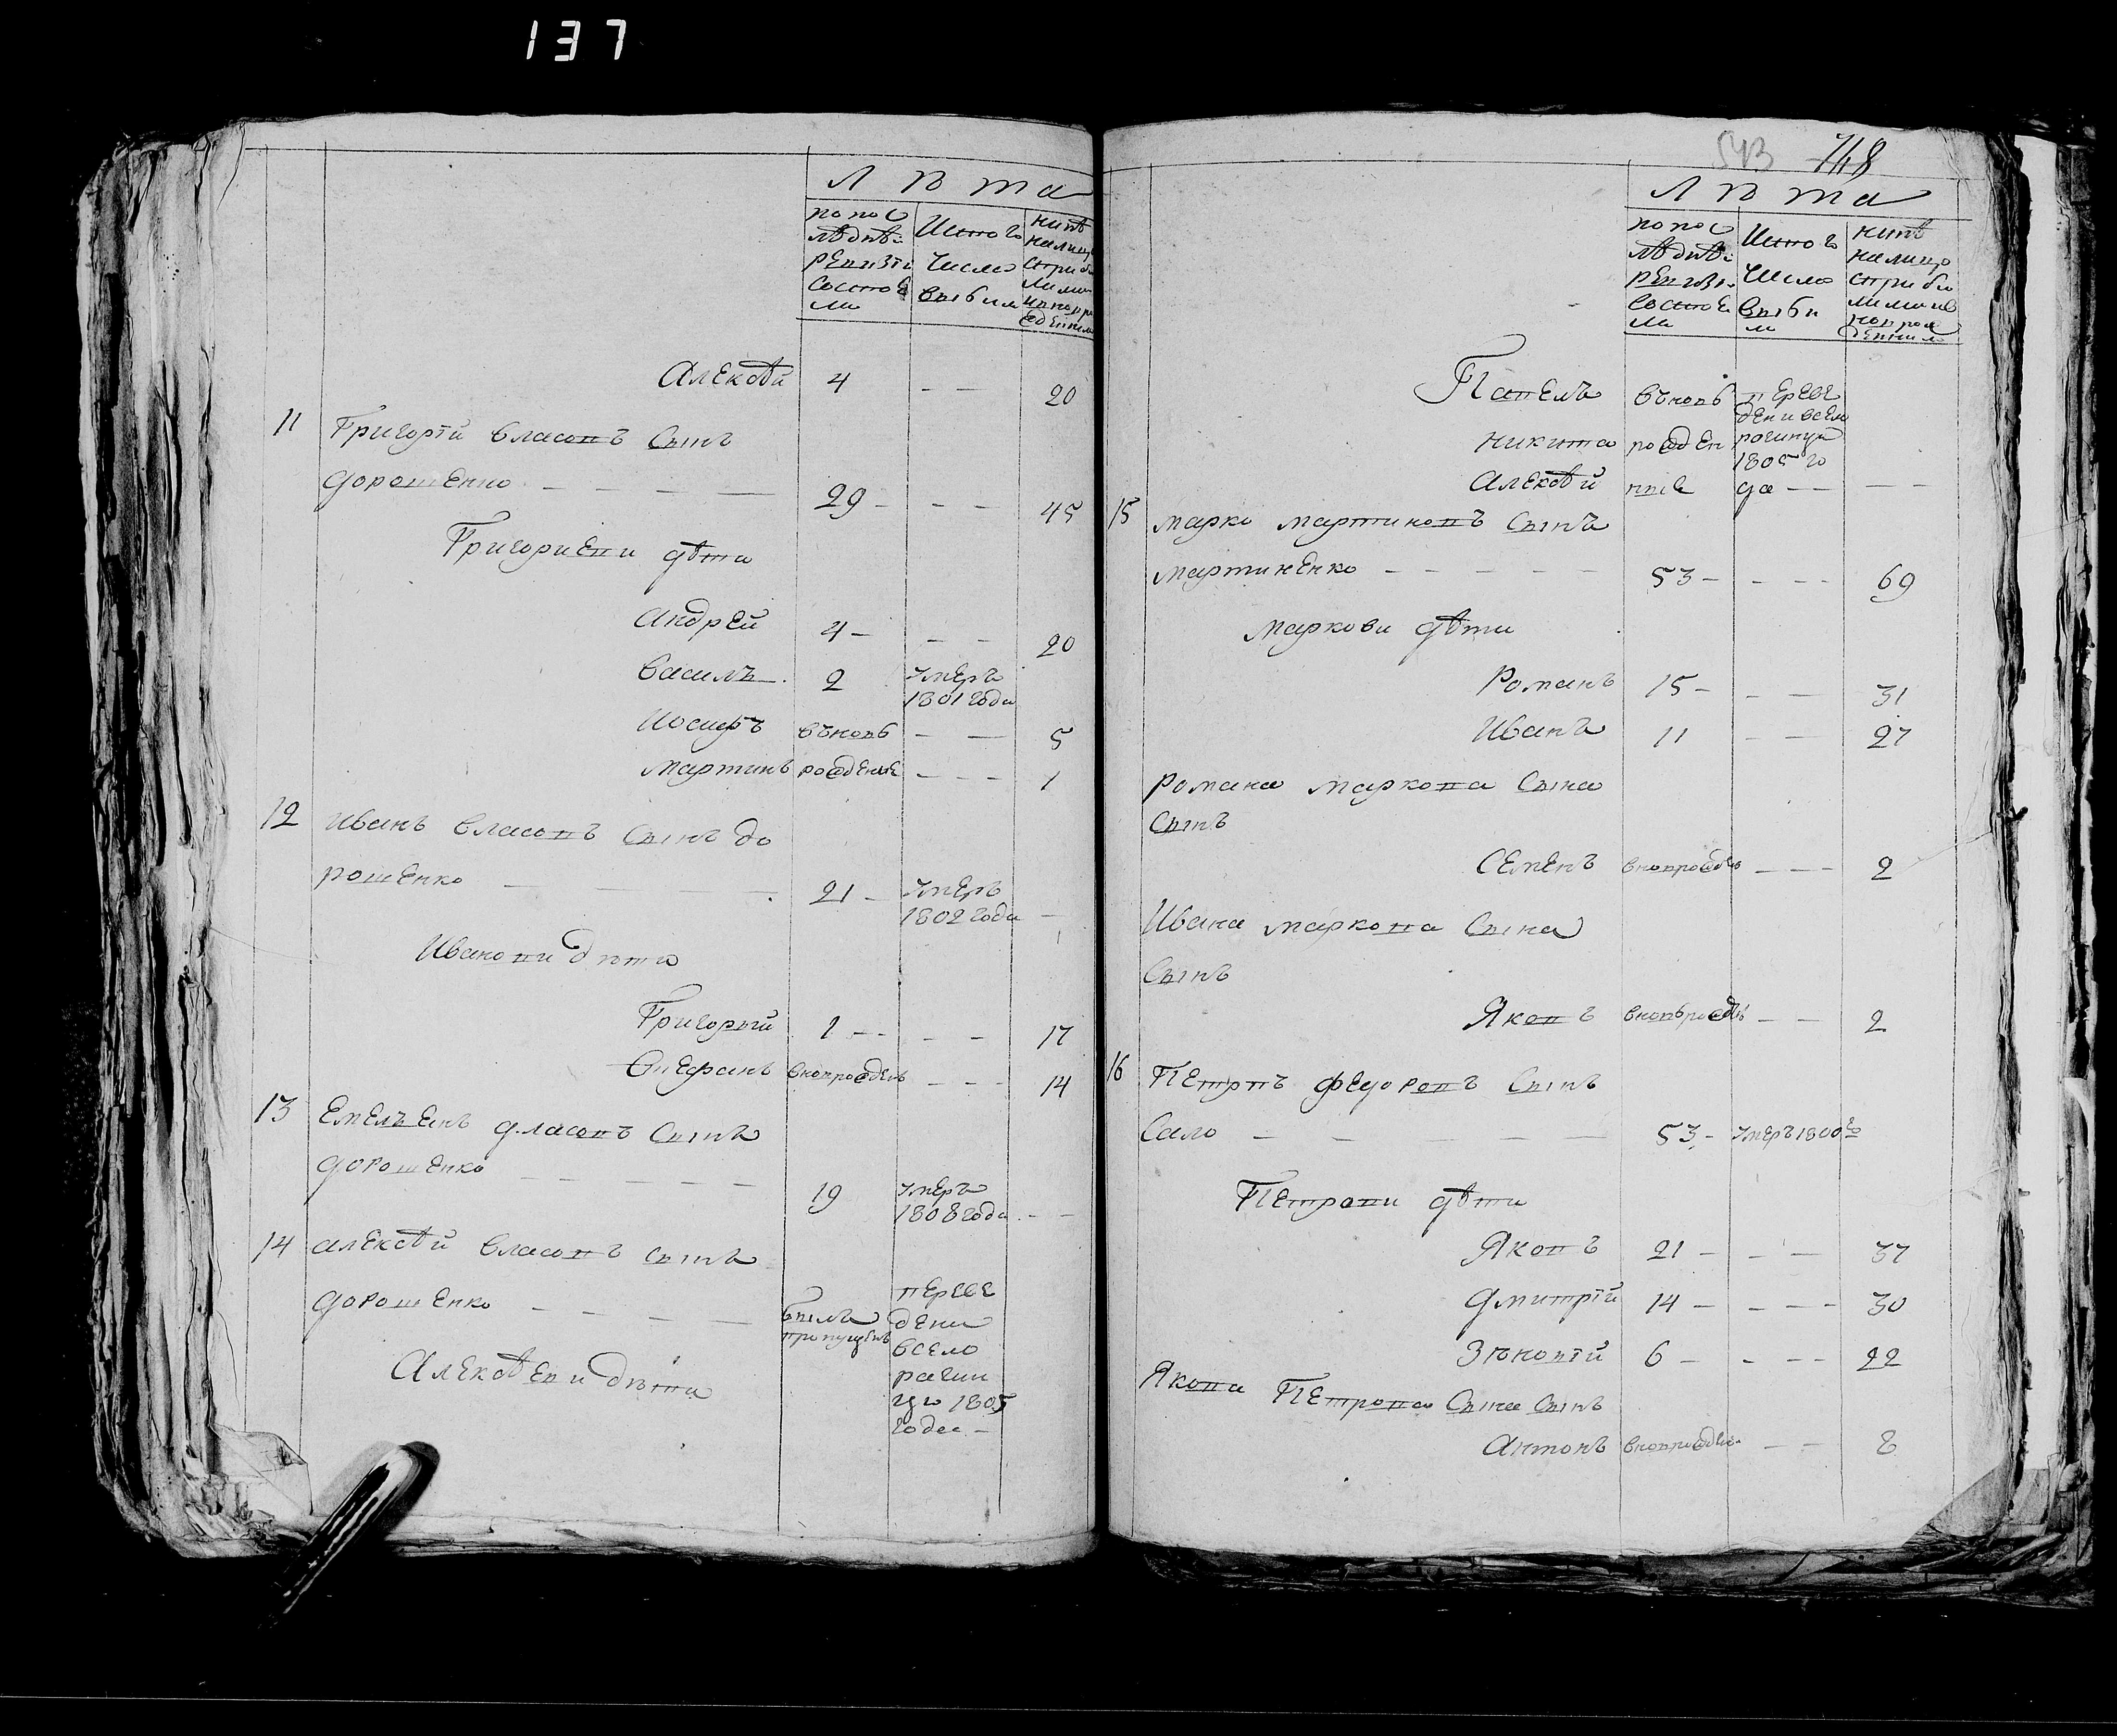 137
Лѣта
по пос
лѣдней
ревизіи
состоя
ли
Изъ того
числа
выбыли
нинѣ
налицо
Алексѣй 4 — — 20
11 Григорій Власовъ сынъ
Дорошенко — — — — 29 — — — 45
Григориеви дѣти
Андрей 4 — — — 20
Василь 2 умеръ
1801 года
Иосифъ въновь — — 5
Мартинъ рожденые — — — 1
12 Иванъ Власовъ сынъ До
рошенко — — — 21 — умеръ
1802 года —
Иванови дѣти
Григорий 1 — — — — 17
Стефанъ вновьрожденъ — — — 14
13 Емельенъ Власовъ сынъ
Дорошенко — — — — — 19 умеръ
1808 года — —
14 Алексѣй Власовъ сынъ
Дорошенко — — — — былъ
пропущенъ
переве
дени
всело
рагин
цу 1805
года —
Алексѣеви дѣти
543 748
Лѣта
по пос
лѣдней
ревизіи
состоя
ли
Изъ того
число
выбы
ли
нинѣ
налицо
Павелъ въновь переве
дени всело
Никита рожден рогинцу
1805 го
Алексѣй ные да — — — —
15 Марко Мартиновъ сынъ
Мартиненко — — — — — 53 — — — — 69
Маркови дѣти
Романъ 15 — — — 31
Иванъ 11 — — 27
Романа Маркова сына
сынъ
Семенъ вновьрожденъ — — — 2
Ивана Маркова сына
сынъ
Яковъ вновьрожденъ — — 2
16 Петръ Федоровъ сынъ
Сало — — — — 53 — умеръ 1800 го
Петрови дѣти
Яковъ 21 — — — 37
Дмитрій 14 — — — — 30
Зѣновій 6 — — — — 22
Якова Петрова сына сынъ
Антонъ вновьрожден — — 8